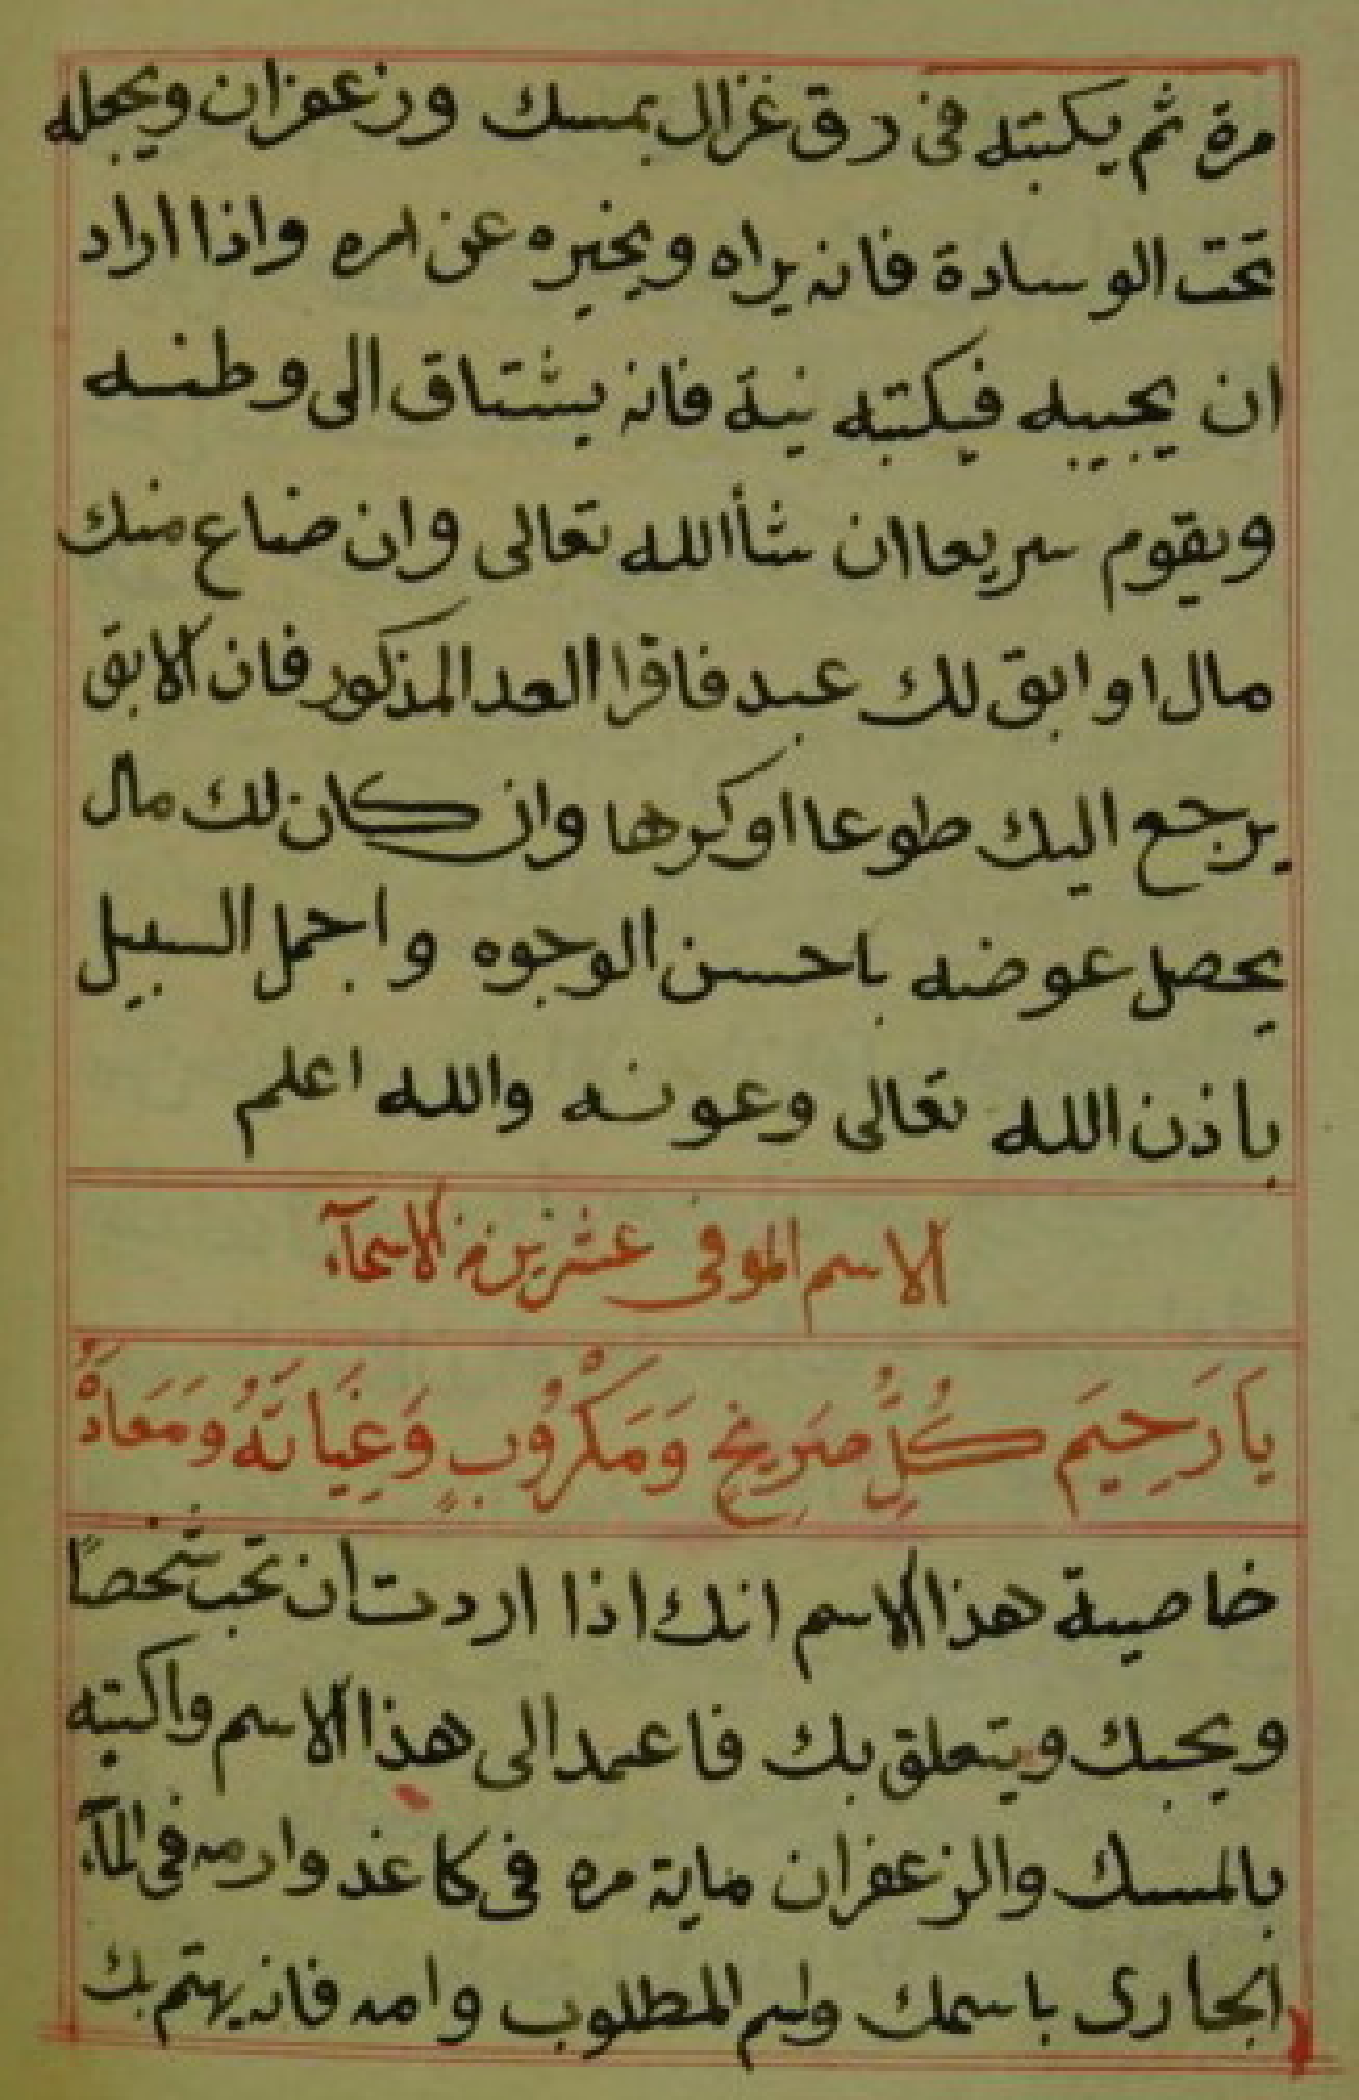 مرة ثم يكتبه في رق غزال بمسك وزعفران ويجعله
تحت الوسادة فانه يراه ويخبره عن امره واذا اراد
ان يجيبه فيكتبه نية فانه يشتاق الى وطنه
ويقوم سريعا ان شأالله تعالى وان ضاع منك
مال او ابق لك عبد فاقرا العد المذكور فان الابق
يرجع اليك طوعا اوكرها وان كان لك مال
يحصل عوضه باحسن الوجوه واجمل السبيل
باذن الله تعالى وعونه والله اعلم
الاسم الموفى عشرين من الاسمآء
يَا رَحِيَم كُلِّ صَرِيخٍ وَمَكْرُوبٍ وَغِيَاثَهُ وَمَعَاذَهُ
خاصية هذا الاسم انك اذا اردت ان تحب شخصاً
ويحبك ويتعلق بك فاعمد الى هذا الاسم واكتبه
بالمسك والزعفران ماية مره في كاغذ وارمه في المآء
الجارى باسمك واسم المطلوب وامه فانه يهتم بك